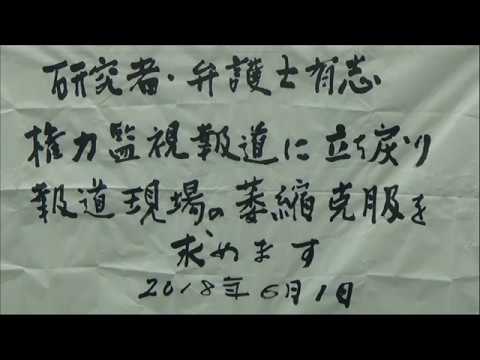 研究者・弁護士有志
権力監視報道に立ち戻り
報道現場の萎縮克服を
求めます
2018年6月1日